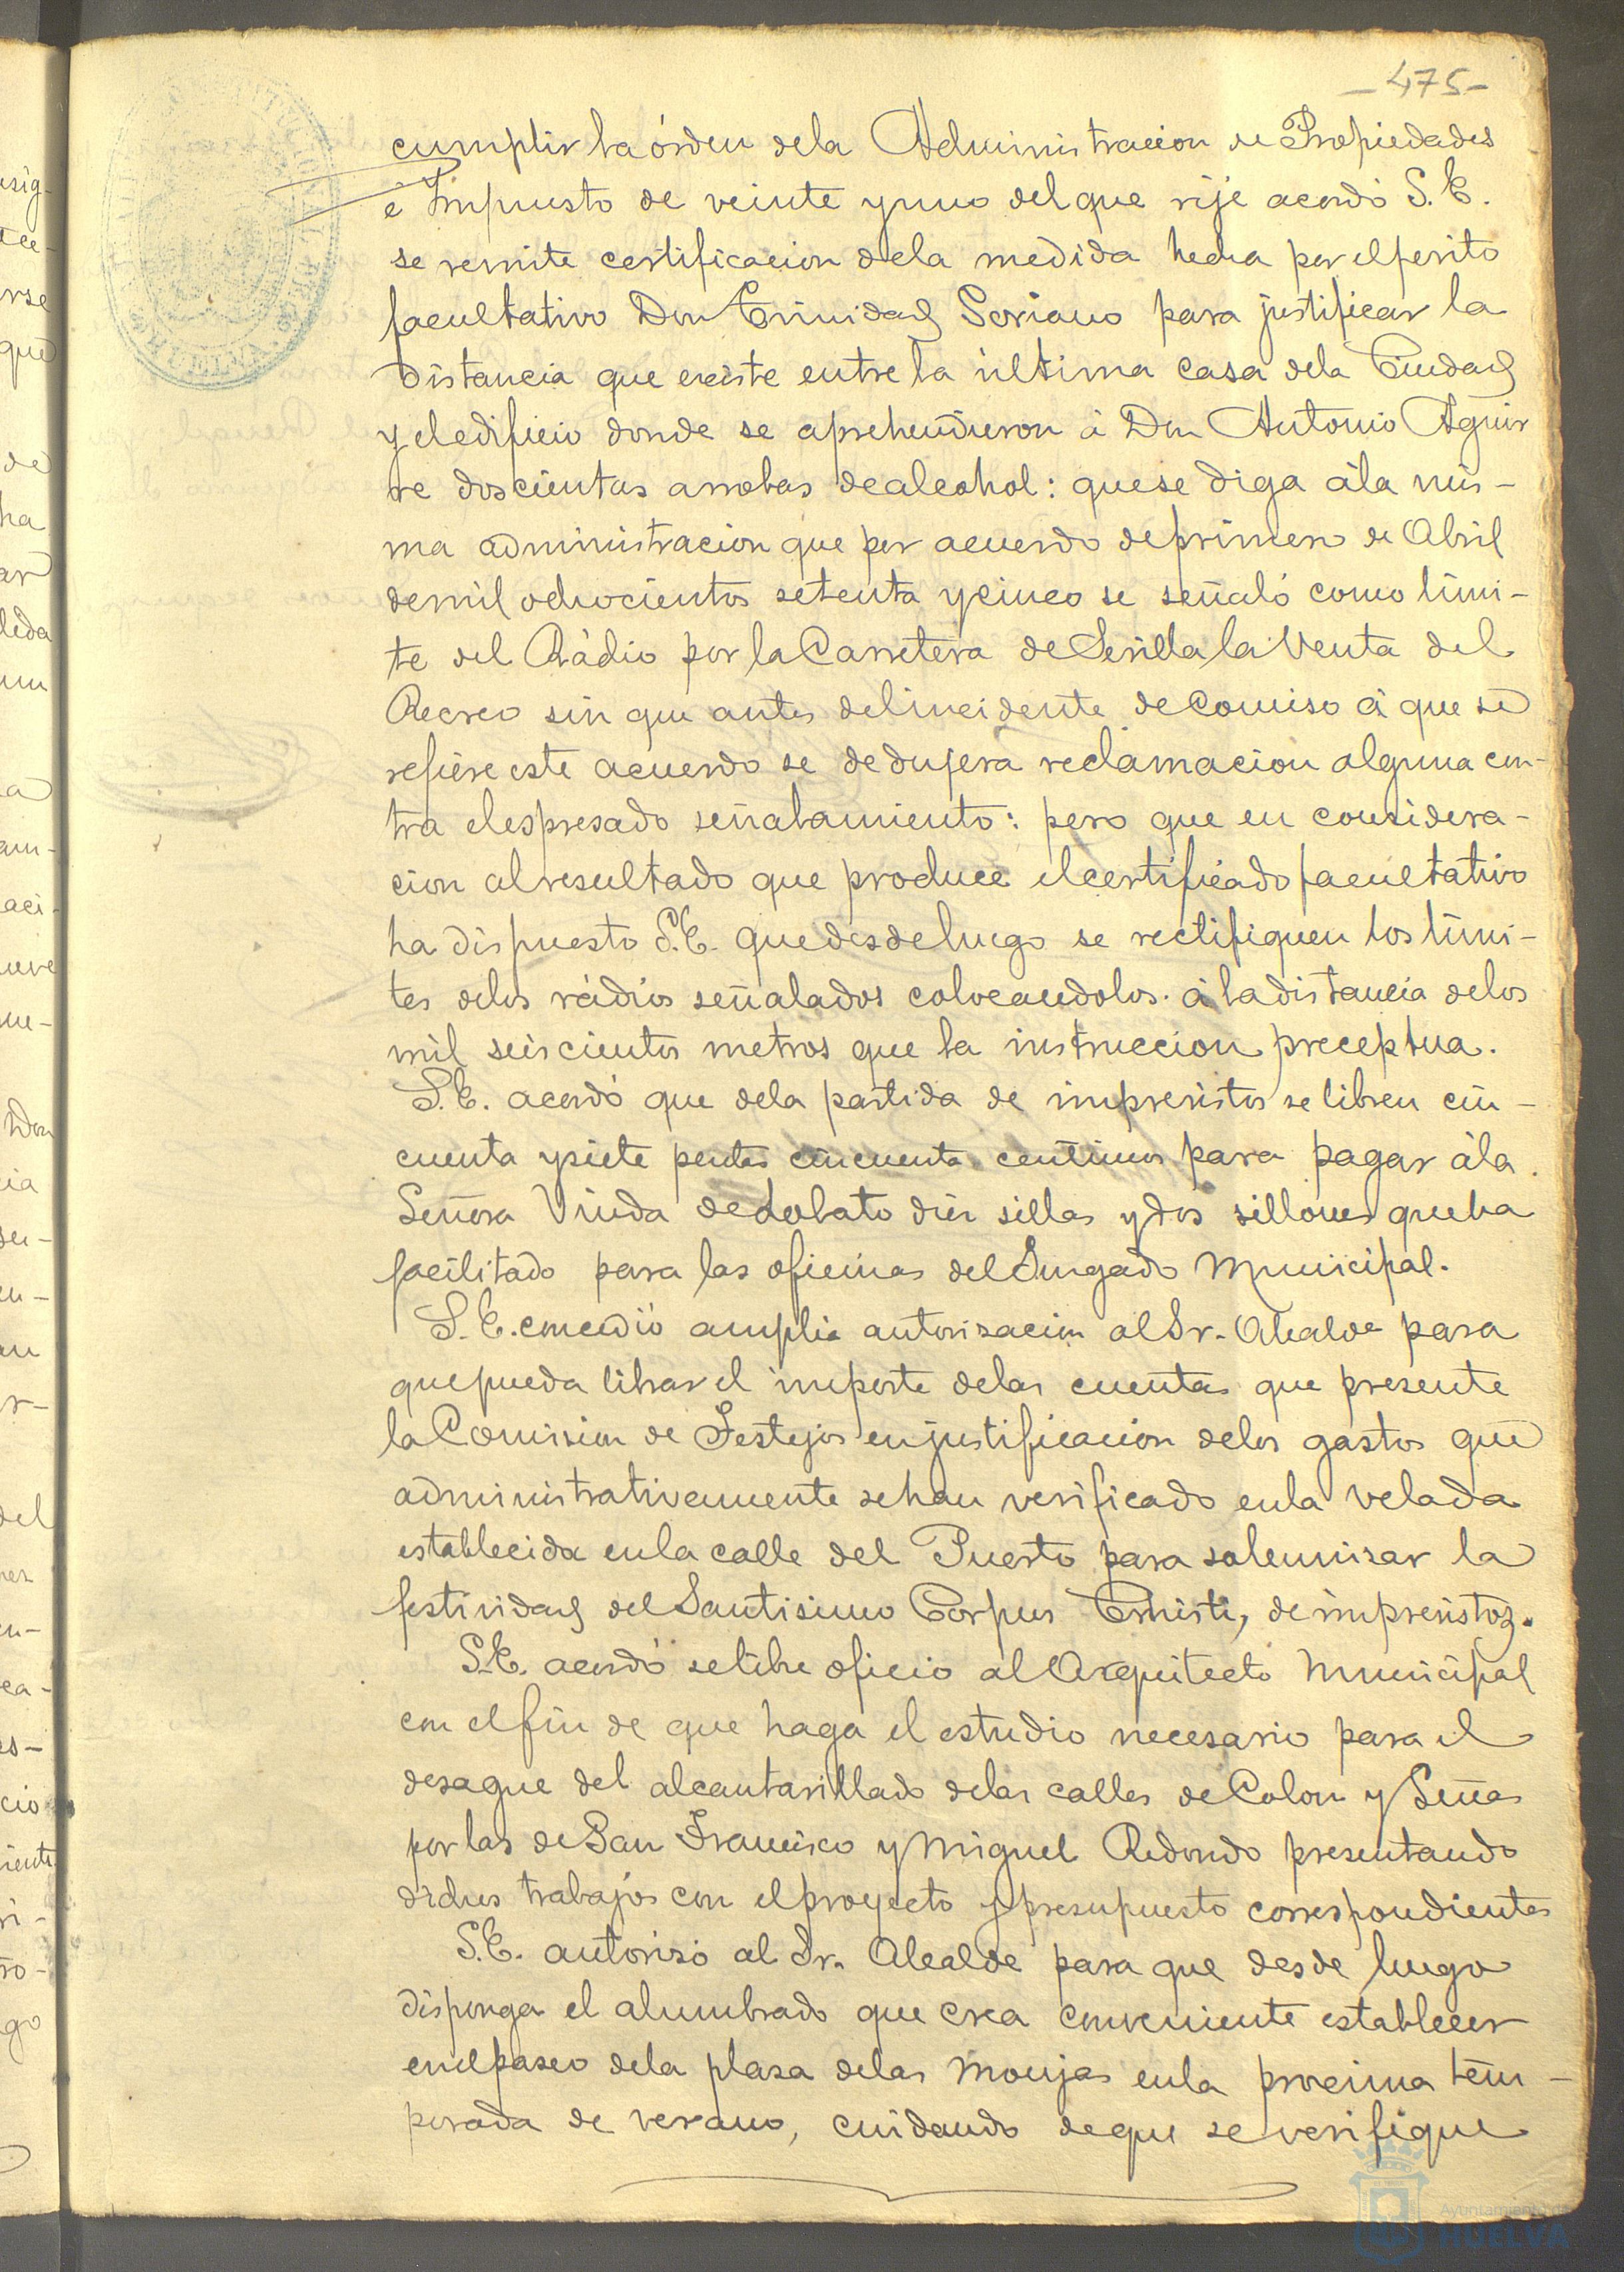 -475-
cumplir la órden de la Administracion de Propiedades
é Impuesto de veinte y uno del que rije acordó S. E.
se remite certificacion de la medida hecha por el perito
facultativo Don Trinidad Soriano para justificar la
distancia que existe entre la última casa de la Ciudad
y el edificio donde se aprehendieron á Don Antonio Aguir
re doscientas arrobas de alcohol: que se diga á la mis-
ma administracion que por acuerdo de primero de Abril
de mil ochocientos setenta y cinco se señaló como limi-
te del Rádio por la Carretera de Sevilla la Venta del
Recreo sin que antes del incidente de comiso á que se
refiere este acuerdo se dedujera reclamacion alguna con-
tra el espresado señalamiento: pero que en considera-
cion al resultado que produce el certificado facultativo
ha dispuesto S. E. que desde luego se rectifiquen los limi-
tes de los rádios señalados colocandolos á la distancia de los
mil seiscientos metros que la instruccion preceptua.
S. E. acordó que de la partida de imprevistos se libren cin-
cuenta y siete pesetas cincuenta centimos para pagar á la
Señora Viuda de Lobato diez sillas y dos sillones que ha
facilitado para las oficinas del Jusgado Municipal.
S. E. concedió amplia autorisacion al Sr. Alcalde para
que pueda librar el importe de las cuentas que presente
la Comision de Festejos en justificacion de los gastos que
administrativamente se han verificado en la velada
establecida en la calle del Puerto para solemnisar la
festividad del Santisimo Corpus Christi, de imprevistos.
S. E. acordó se libre oficio al Arquitecto Municipal
con el fin de que haga el estudio necesario para el
desague del alcantarillado de las calles de Colon y Señas
por las de San Francisco y Miguel Redondo presentando
dichos trabajos con el proyecto y presupuesto correspondientes
S. E. autorisó al Sr. Alcalde para que desde luego
disponga el alumbrado que crea conveniente establecer
en el paseo de la plasa de las Monjas en la proxima tem-
porada de verano, cuidando de que se verifique
Ayuntamiento de
HUELVA